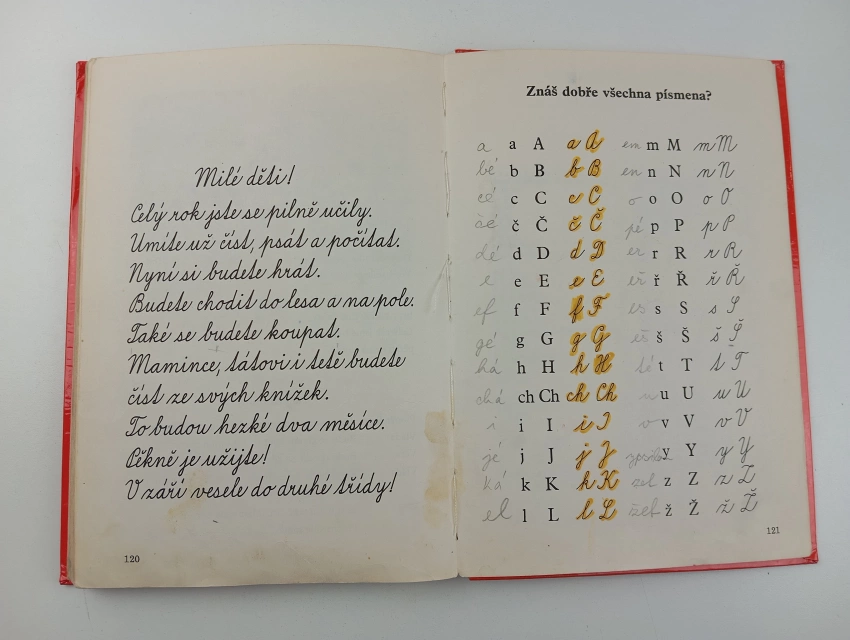 Milé děti!
Celý rok jste se pilně učily.
Umíte už číst, psát a počítat.
Nyní si budete hrát.
Budete chodit do lesa a na pole.
Také se budete koupat.
Mamince, tátovi i tetě budete
číst ze svých knížek.
To budou hezké dva měsíce.
Pěkně je užijte!
V září vesele do druhé třídy!
120
Znáš dobře všechna písmena?
a a A a A em m M m M
bé b B b B en n N n N
cé c C c C o o O o O
čé č Č č Č pé p P p P
dé d D d D er r R r R
e e E e E eř ř Ř ř Ř
ef f F f F es s S s S
gé g G g G eš š Š š Š
há h H h H té t T t T
chá ch Ch ch Ch u u U u U
i i I i I v v V v V
jé j J j J y Y y Y
ká k K k K zet z Z z Z
el l L l L žet ž Ž ž Ž
121